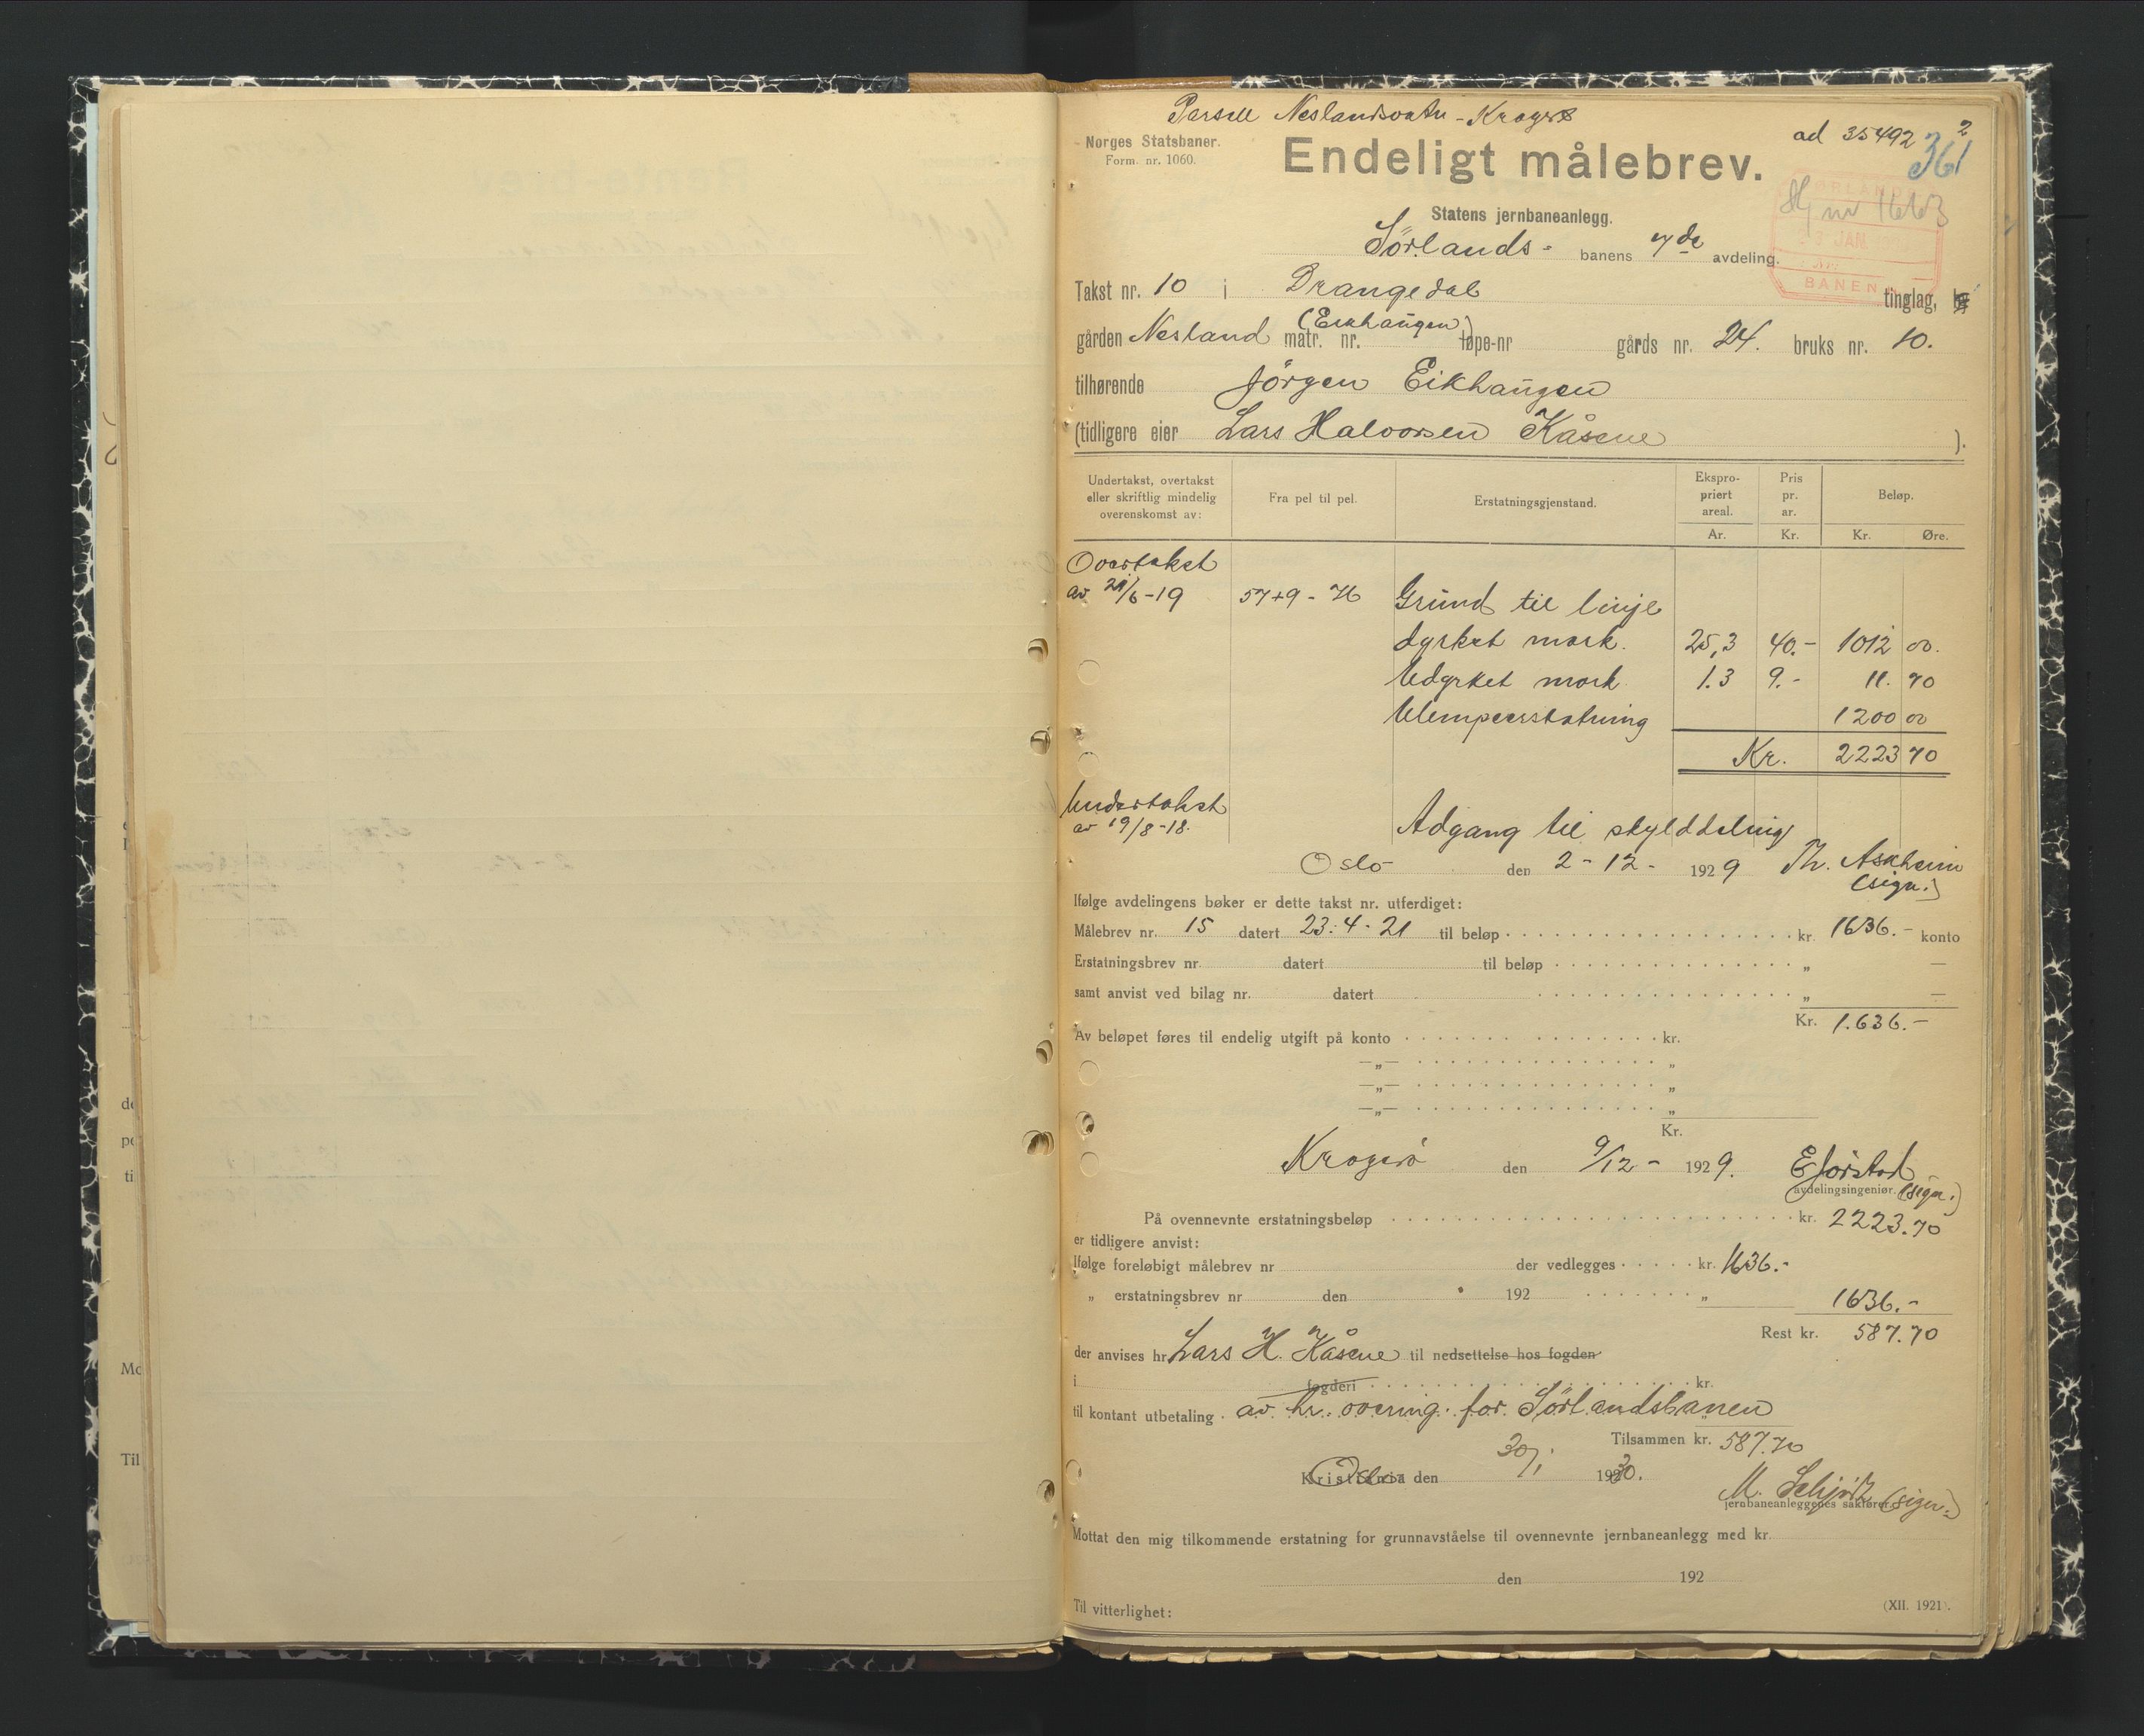 Parsell Neslandsvatn - Kragerø
Norges Statsbaner.
Form. nr. 1060.
ad 35492 2
361
Endeligt målebrev.
Statens jernbaneanlegg.
Sørlands- banens 7de avdeling.
JAN
BANEN
Takst nr. 10 i Drangedal tinglag,
gården Nesland (Eikhaugen) matr. nr. løpe-nr gårds nr. 24. bruks nr. 10.
tilhørende Jörgen Eikhaugen
(tidligere eier Lars Halvorsen Kåsene ).
Undertakst, overtakst eller skriftlig mindelig overenskomst av: Fra pel til pel. Erstatningsgjenstand. Ekspropriert areal. Pris pr. ar. Beløp.
Ar. Kr. Kr. Øre.
Overtakst
av 21/6-19 57+9 - 76 Grund til linje
dyrket mark. 25,3 40.- 1012 00.
Udyrket mark 1.3 9.- 11. 70
Ulempeerstatning 1200 00
Kr. 2223 70
Undertakst
av 19/8-18. Adgang til skylddeling
Oslo den 2-12- 1929 Th. Askheim
(sign.)
Ifølge avdelingens bøker er dette takst nr. utferdiget:
Målebrev nr. 15 datert 23.4.21 til beløp kr. 1636.- konto
Erstatningsbrev nr. datert til beløp „ —
samt anvist ved bilag nr. datert „ —
Kr. 1.636.-
Av beløpet føres til endelig utgift på konto kr.
—„— „
—„— „
—„— „
Kr.
Kragerö den 9/12- 1929. E Jörstad
avdelingsingeniør. (sign.)
På ovennevnte erstatningsbeløp kr. 2223.70
er tidligere anvist:
Ifølge foreløbigt målebrev nr der vedlegges kr. 1636.-
„ erstatningsbrev nr den 192 „ 1636.-
Rest kr. 587.70
der anvises hr. Lars H. Kåsene til nedsettelse hos fogden
i fogderi kr.
til kontant utbetaling av hr. overing. for Sörlandsbanen
Tilsammen kr. 587.70
Kristiania Oslo den 30/1 1930.
M. Schjötz (sign.)
jernbaneanleggenes sakfører.
Mottat den mig tilkommende erstatning for grunnavståelse til ovennevnte jernbaneanlegg med kr.
den 192
Til vitterlighet:
(XII. 1921).